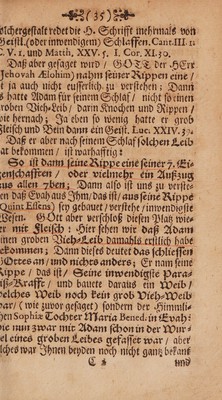 ( 35 )
solchergestalt redet die H. Schrifft mehrmals von
Geistl. (oder inwendigem) Schlaffen, Cant. III. 1.
C. V. 1, und Matth, XXV. 5. I. Cor. XI. 30.
Daß aber gesaget wird / GOTT der HErr
(Jehovah Ælohim) nahm seiner Rippen eine /
ist ja auch nicht eusserlich zu verstehen; Dann
es hatte Adam für seinem Schlaf / nicht so einen
groben Vieh-Leib / darin Knochen und Rippen /
wie hernach; Ja eben so wenig hatte er grob
Fleisch und Bein dann ein Geist. Luc. XXIV. 39.
Daß er aber nach seinem Schlaf solchen Leib
hat bekommen / ist warhafftig:
So ist dann seine Rippe eine seiner 7. Ei-
genschafften / oder vielmehr ein Außzug
aus allen 7ben; Dann also ist uns zu verste-
hen daß Evah aus ihm / das ist / aus seine Rippe
(Quint Essens) sey gebauet / verstehe / inwendigste
Wesen. GOtt aber verschloß diesen Platz wie-
der mit Fleisch: Hier sehen wir daß Adam
einen groben Vieh-Leib damahls erstlich habe
bekommen; Dann dieses deutet das schliessen
GOttes an / und nichts anders; Er nam seine
Rippe / das ist / Seine inwendigste Para-
dieß-Krafft / und bauete daraus ein Weib /
welches Weib noch kein grob Vieh-Weib
war / (wie zuvor gesaget) sondern der Himmli-
schen Sophiæ Tochter Maria Bened. in Evah:
die nun zwar mit Adam schon in der Wur-
zel eines groben Leibes gefasset war / aber
solches war Ihnen beyden noch nicht gantz bekant
und